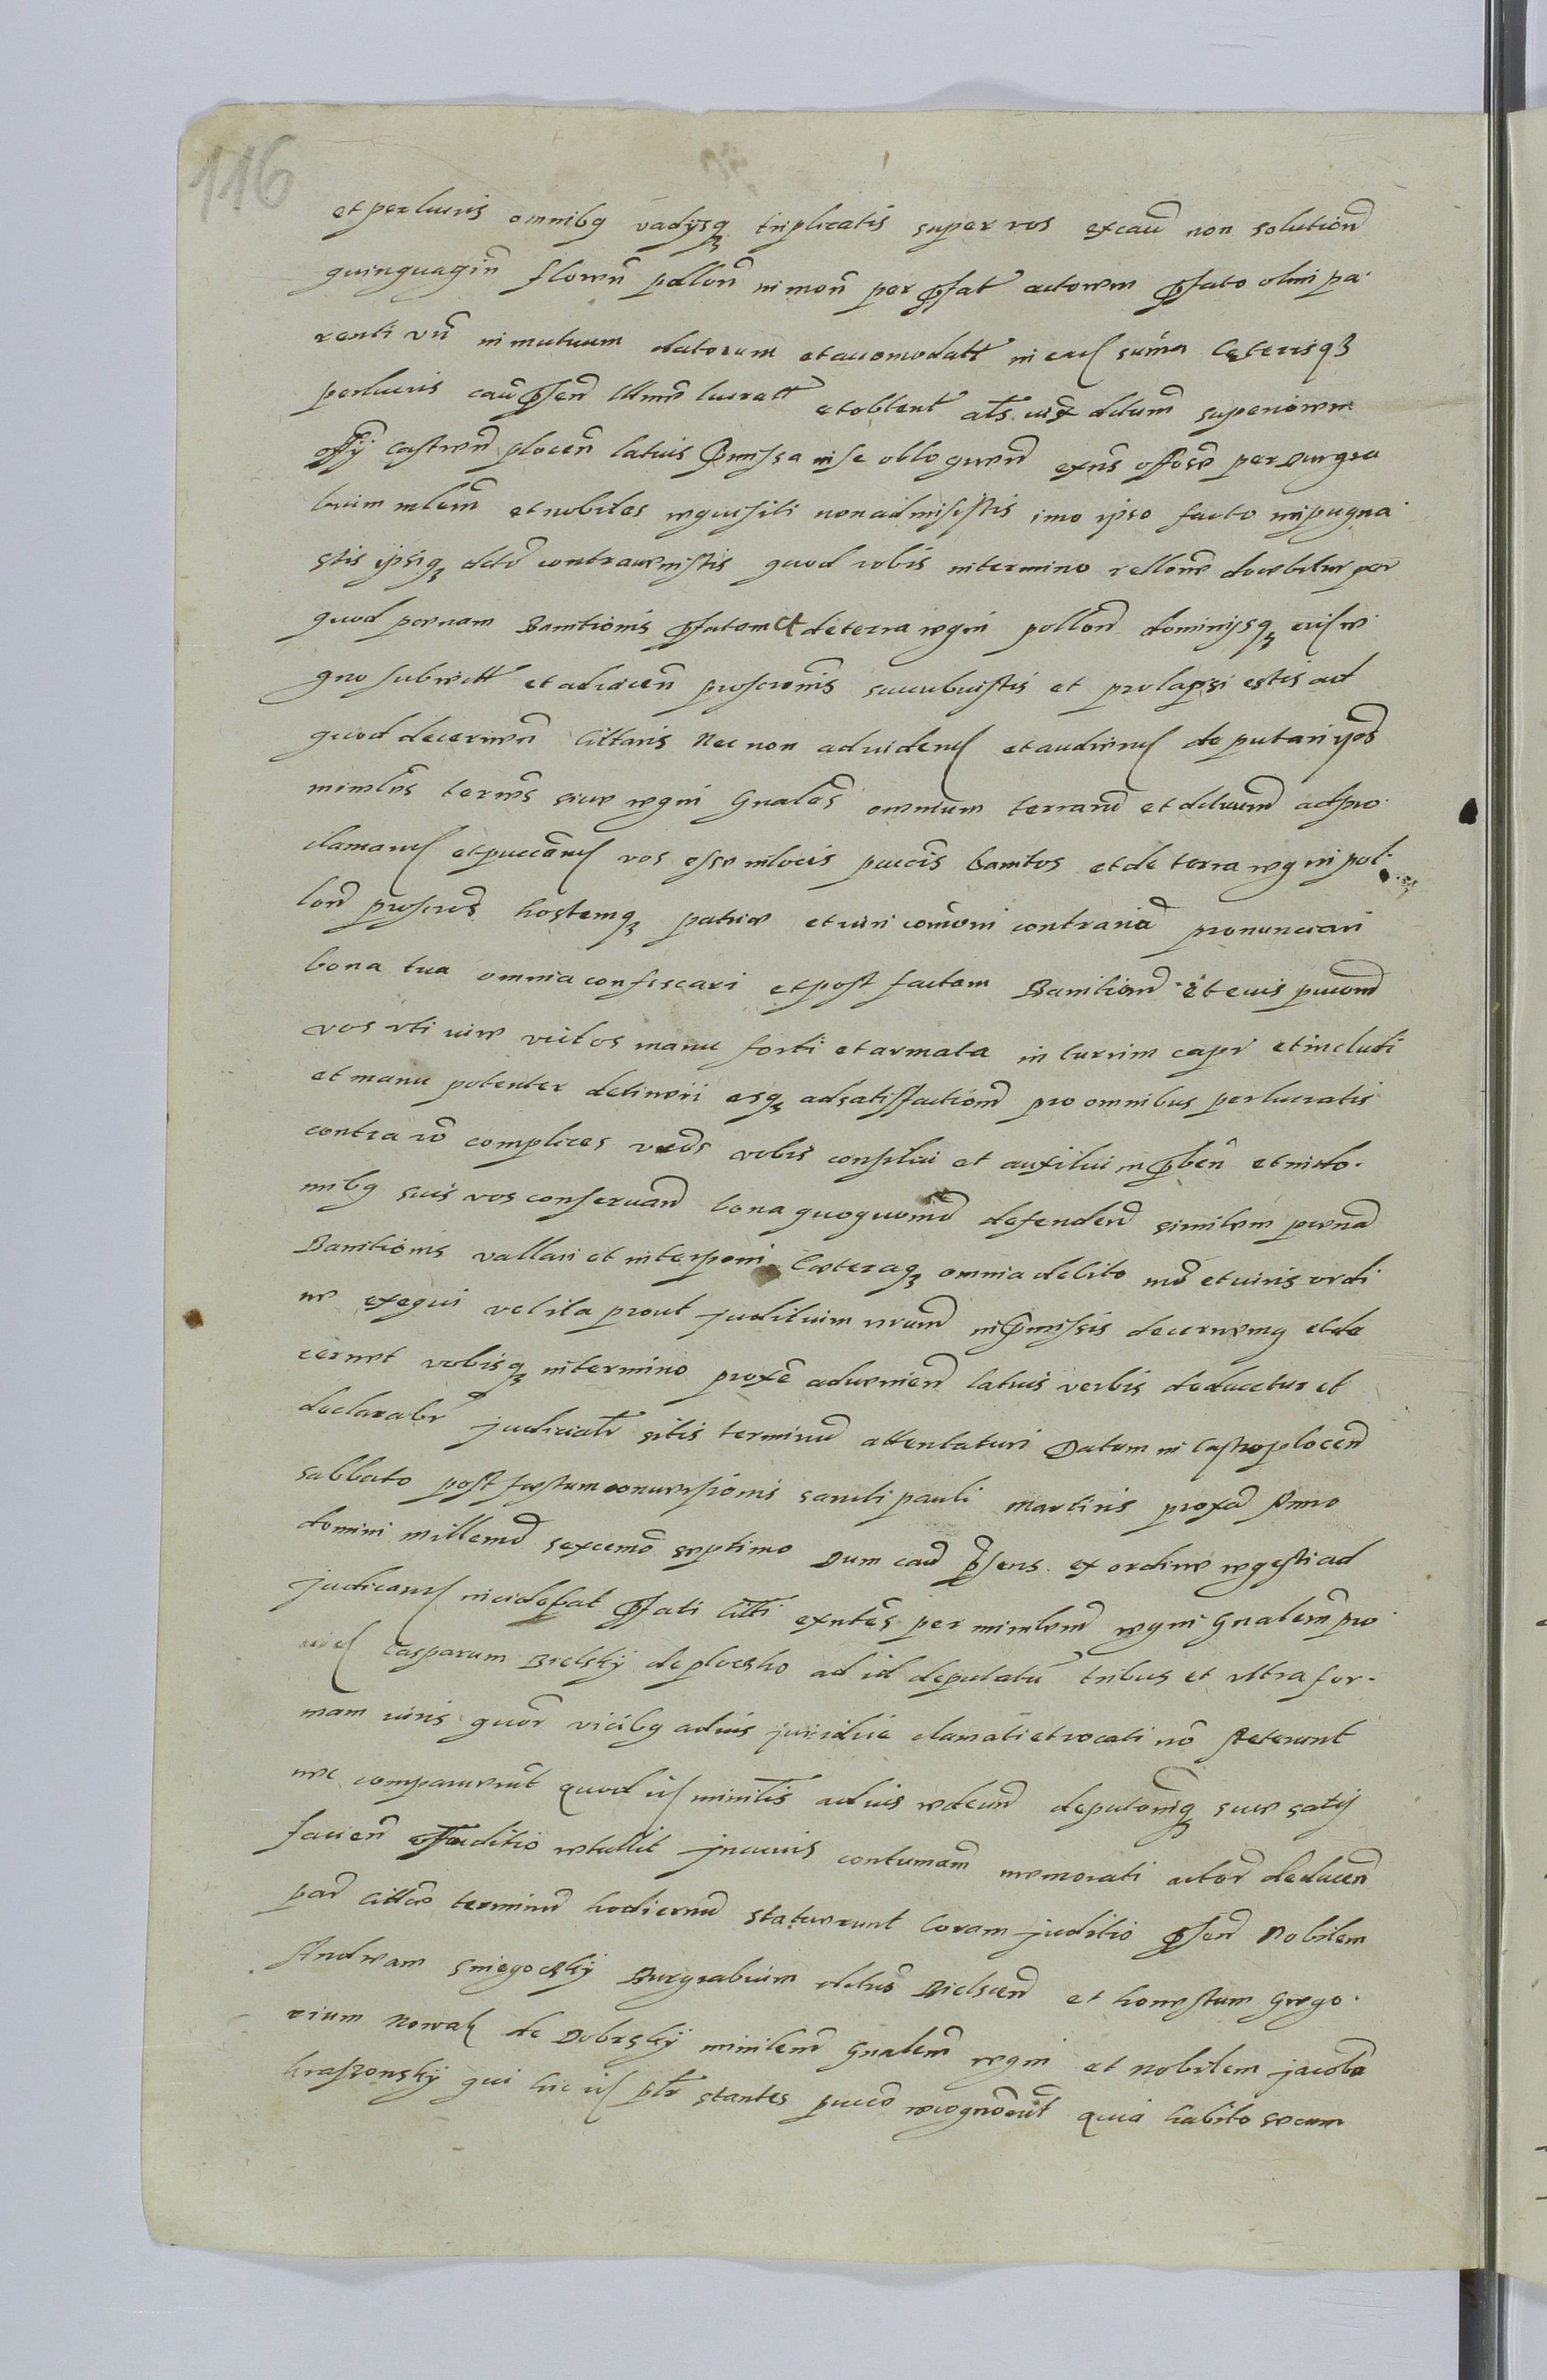 116
et perlucris omnibq vadysq triplicatis super vos ex cau non solution
quinquagin floren pollon in mon per pfat actorem pfato olim pa-
renti vro in mutuum datorum et accomodatt in ead summa Ceterisq
perlucris cau psen lucratt et obtent als superiorem
offy castren plocen latius pmissa in se obloquen exns offose per Burgra
bium et nobiles requisiti non admisistis imo ipso facto impugna
stis ipsiq contravenistis quod vobis in termino rellone docebitur per
quod poenam Banitionis pfatam et de terra regni pollon dominysq eius re
gno subiectt et adiacen proscronis succubuistis et prolapsi estis ad
quod decernen Cittaris Nec non ad vidend et audiend deputari
ministris terres sive regni Gnales omnium terrarum et adpro
clamand et puccand vos esse in locis puccis banitos et de terra regni pol-
lon proscros hostemq patrie et iuri comuni contrariu pronunciari
bona tua omnia confiscari et post factam Banitiom et eius puconm
vos uti iure victos manu forti et armata in turrim capi et includi
et manu potenter detineri esq ad satisfactiom pro omnibus perlucratis
contra vo complices vros vobis consilii et auxilii in pben et in do-
mibq suis vos conseruand bona quoquomo defendend similem pena
Banitionis vallari et interponi Caeteraq omnia debito mo et iuris ordi
ne exequi vel ita prout judicium nrum in pmissis decernemq et de
cernet vobisq in termino proxe advenien latius verbis deducetur et
declarabr judicialr sitis terminu attentaturi Datum in Castro plocen
sabbato post festum conversionis sancti pauli martiris proxa Anno
domini millemo sexcemo septimo Dum cau psens ex ordine regesti ad
judicand incidebat pfati Citti exntes per minlem regni Gnalem pro
vid Casparum Bielsky de plocsko ad id deputatu tribus et ultra for-
mam iuris quor vicibq ad ius juridice clamati et vocati no steterunt
nec comparuerut quod id ministr ad ius redeun deputoniq sue satis
facien juditio retullit In cuius contumam memorati actor deducen
par citto terminu hodiernu statuerunt Coram juditio psen Nobilem
Andream Sniegocky Burgrabium Bielscen et honestum Grego-
rium Nowak de Dobrsky minilem Gnalem regni et Nobilem jacobu
Kraszonsky qui hic id plr stantes pucce recognorut quia habito secum